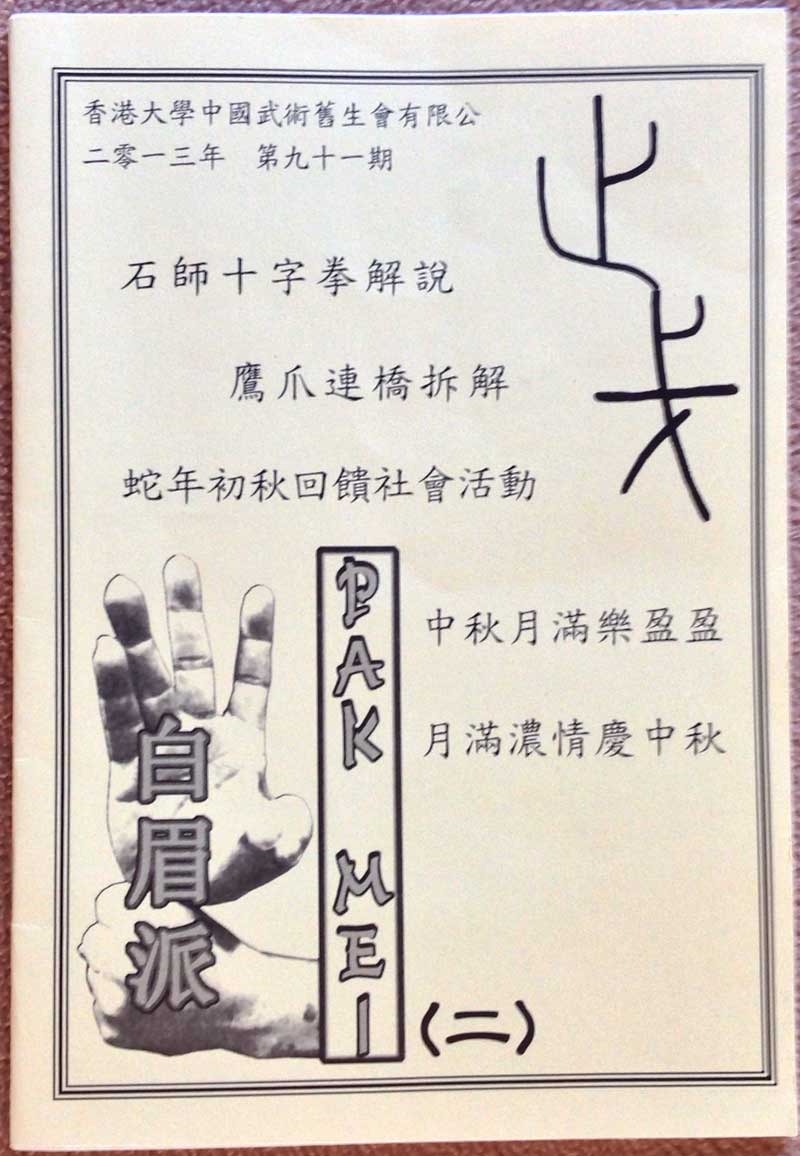 香港大學中國武術舊生會有限公
二零一三年 第九十一期
石師十字拳解說
鷹爪連橋拆解
蛇年初秋回饋社會活動
中秋月滿樂盈盈
月滿濃情慶中秋
白眉派
PAK MEI
(二)